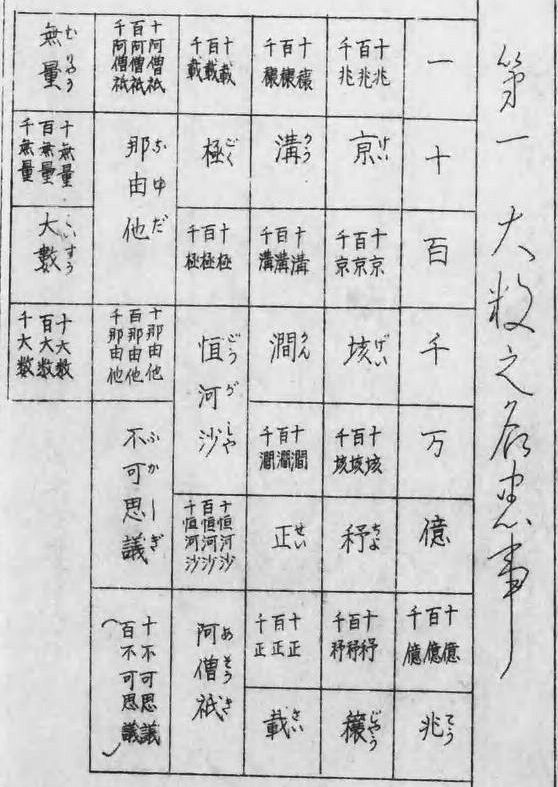 第一 大数之名
事
一
十
百
千
万
億
十億
百億
千億
兆 てう
十兆
百兆
千兆
京 けい
十京
百京
千京
垓
十垓
百垓
千垓
秄 ちよ
十秄
百秄
千秄
穰 じやう
十穰
百穰
千穰
溝 かう
十溝
百溝
千溝
澗 かん
十澗
百澗
千澗
正 せい
十正
百正
千正
載 さい
十載
百載
千載
極 ごく
十極
百極
千極
恒河沙 ごうがしや
十恒河沙
百恒河沙
十恒河沙
阿僧祇 あそうぎ
十阿僧祇
百阿僧祇
千阿僧祇
那由他
十那由他
百那由他
千那由他
不可思議 ふかしぎ
十不可思議
百不可思議
無量 むりやう
十無量
百無量
千無量
大數
十大数
百大数
千大数